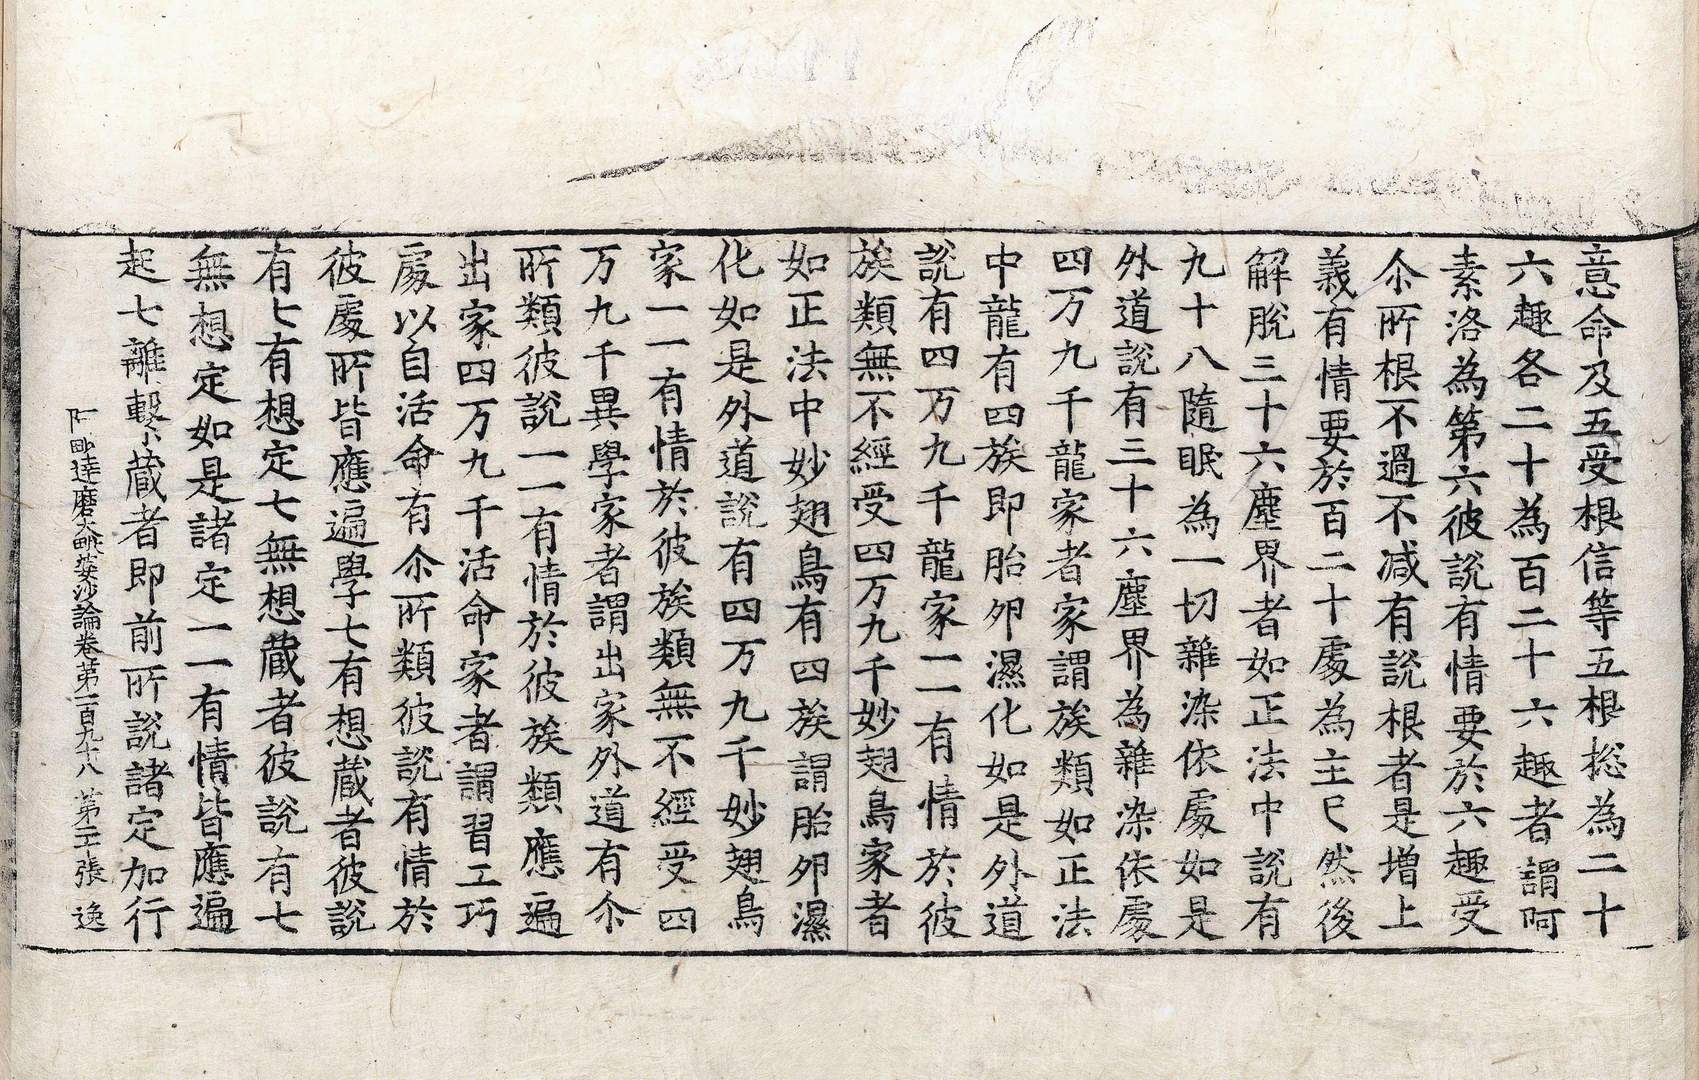 意命及五受根信等五根捴為二十
六趣各二十為百二十六趣者謂阿
素洛為第六彼說有情要於六趣受
尒所根不過不減有說根者是增上
義有情要於百二十處為主已然後
解脫三十六塵界者如正法中說有
九十八隨眠為一切雜染依處如是
外道說有三十六塵界為雜染依處
四万九千龍家者家謂族類如正法
中龍有四族即胎卵濕化如是外道
說有四万九千龍家一一有情於彼
族類無不經受四万九千妙翅鳥家者
如正法中妙翅鳥有四族謂胎卵濕
化如是外道說有四万九千妙翅鳥
家一一有情於彼族類無不經受四
万九千異學家者謂出家外道有尒
所類彼說一一有情於彼族類應遍
出家四万九千活命家者謂習工巧
處以自活命有尒所類彼說有情於
彼處所皆應遍學七有想藏者彼說
有七有想定七無想藏者彼說有七
無想定如是諸定一一有情皆應遍
起七離繫藏者即前所說諸定加行
阿毗達磨大毗婆沙論卷第一百九十八 第二十張 逸